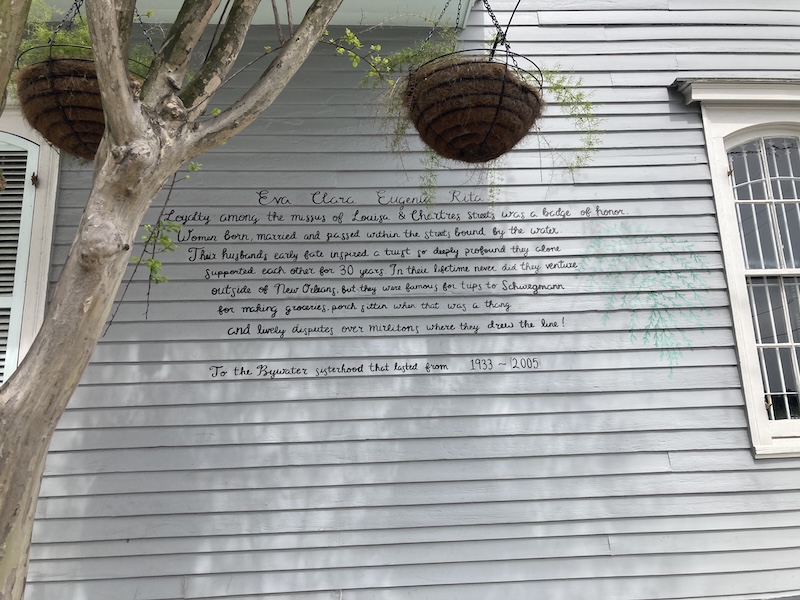 Eva Clara Eugenie Rita
Loyalty among the missus of Louisa & Chartres streets was a badge of honor.
Women born, married and passed within the streets bound by the water
Their husbands early fate inspired a trust so deeply profound they alone
supported each other for 30 years. In their lifetime never did they venture
outside of New Orleans, but they were famous for trips to Schwegmann
for making groceries, porch sittin when that was a thang
and lively disputes over mirlitons where they drew the line!
To the Bywater sisterhood that lasted from 1933 ~ 2005